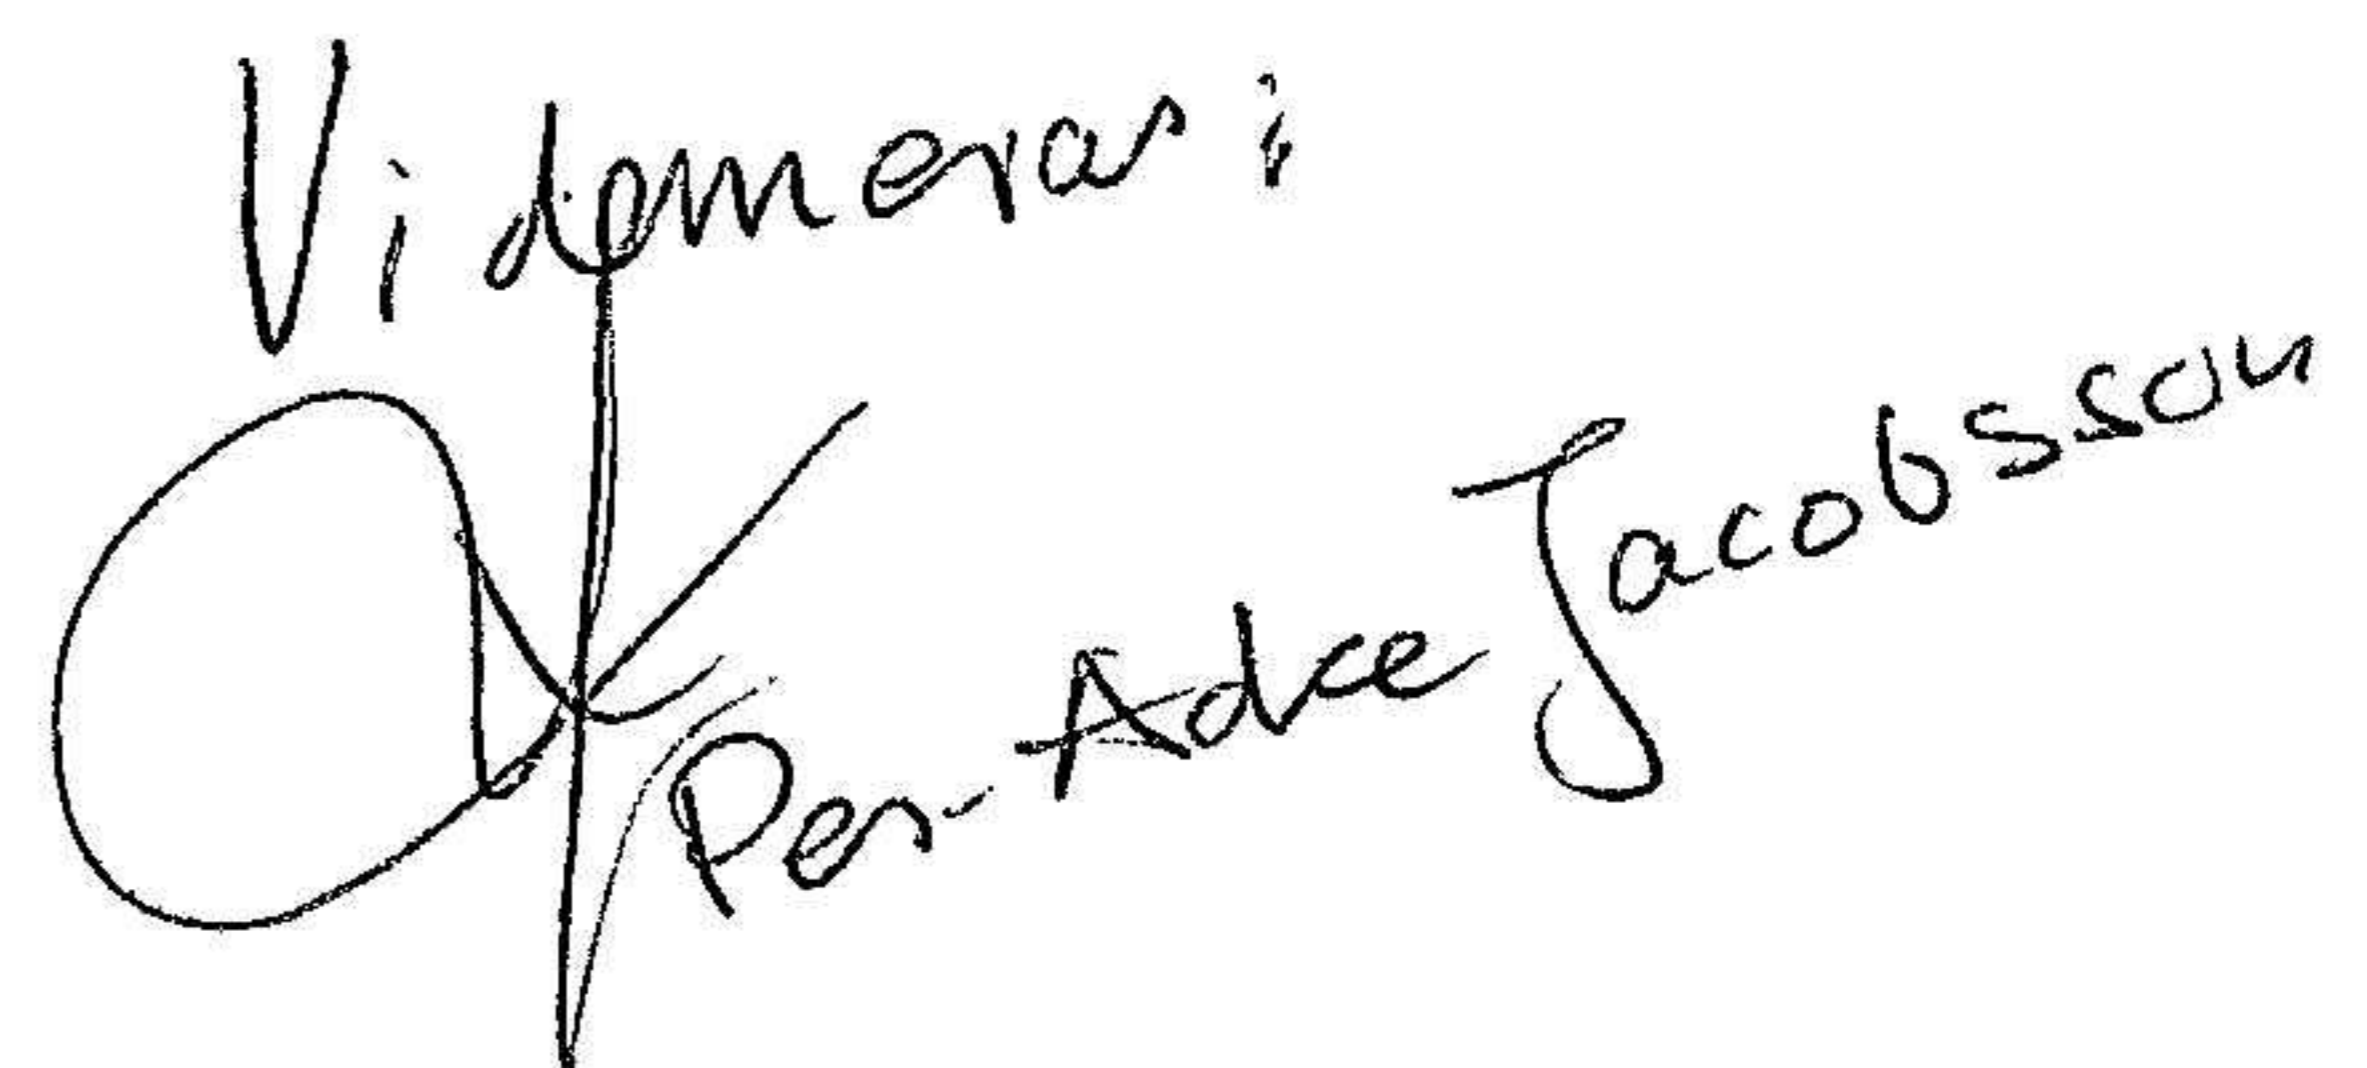 Videmeras:
Per-Adke Jacobsson